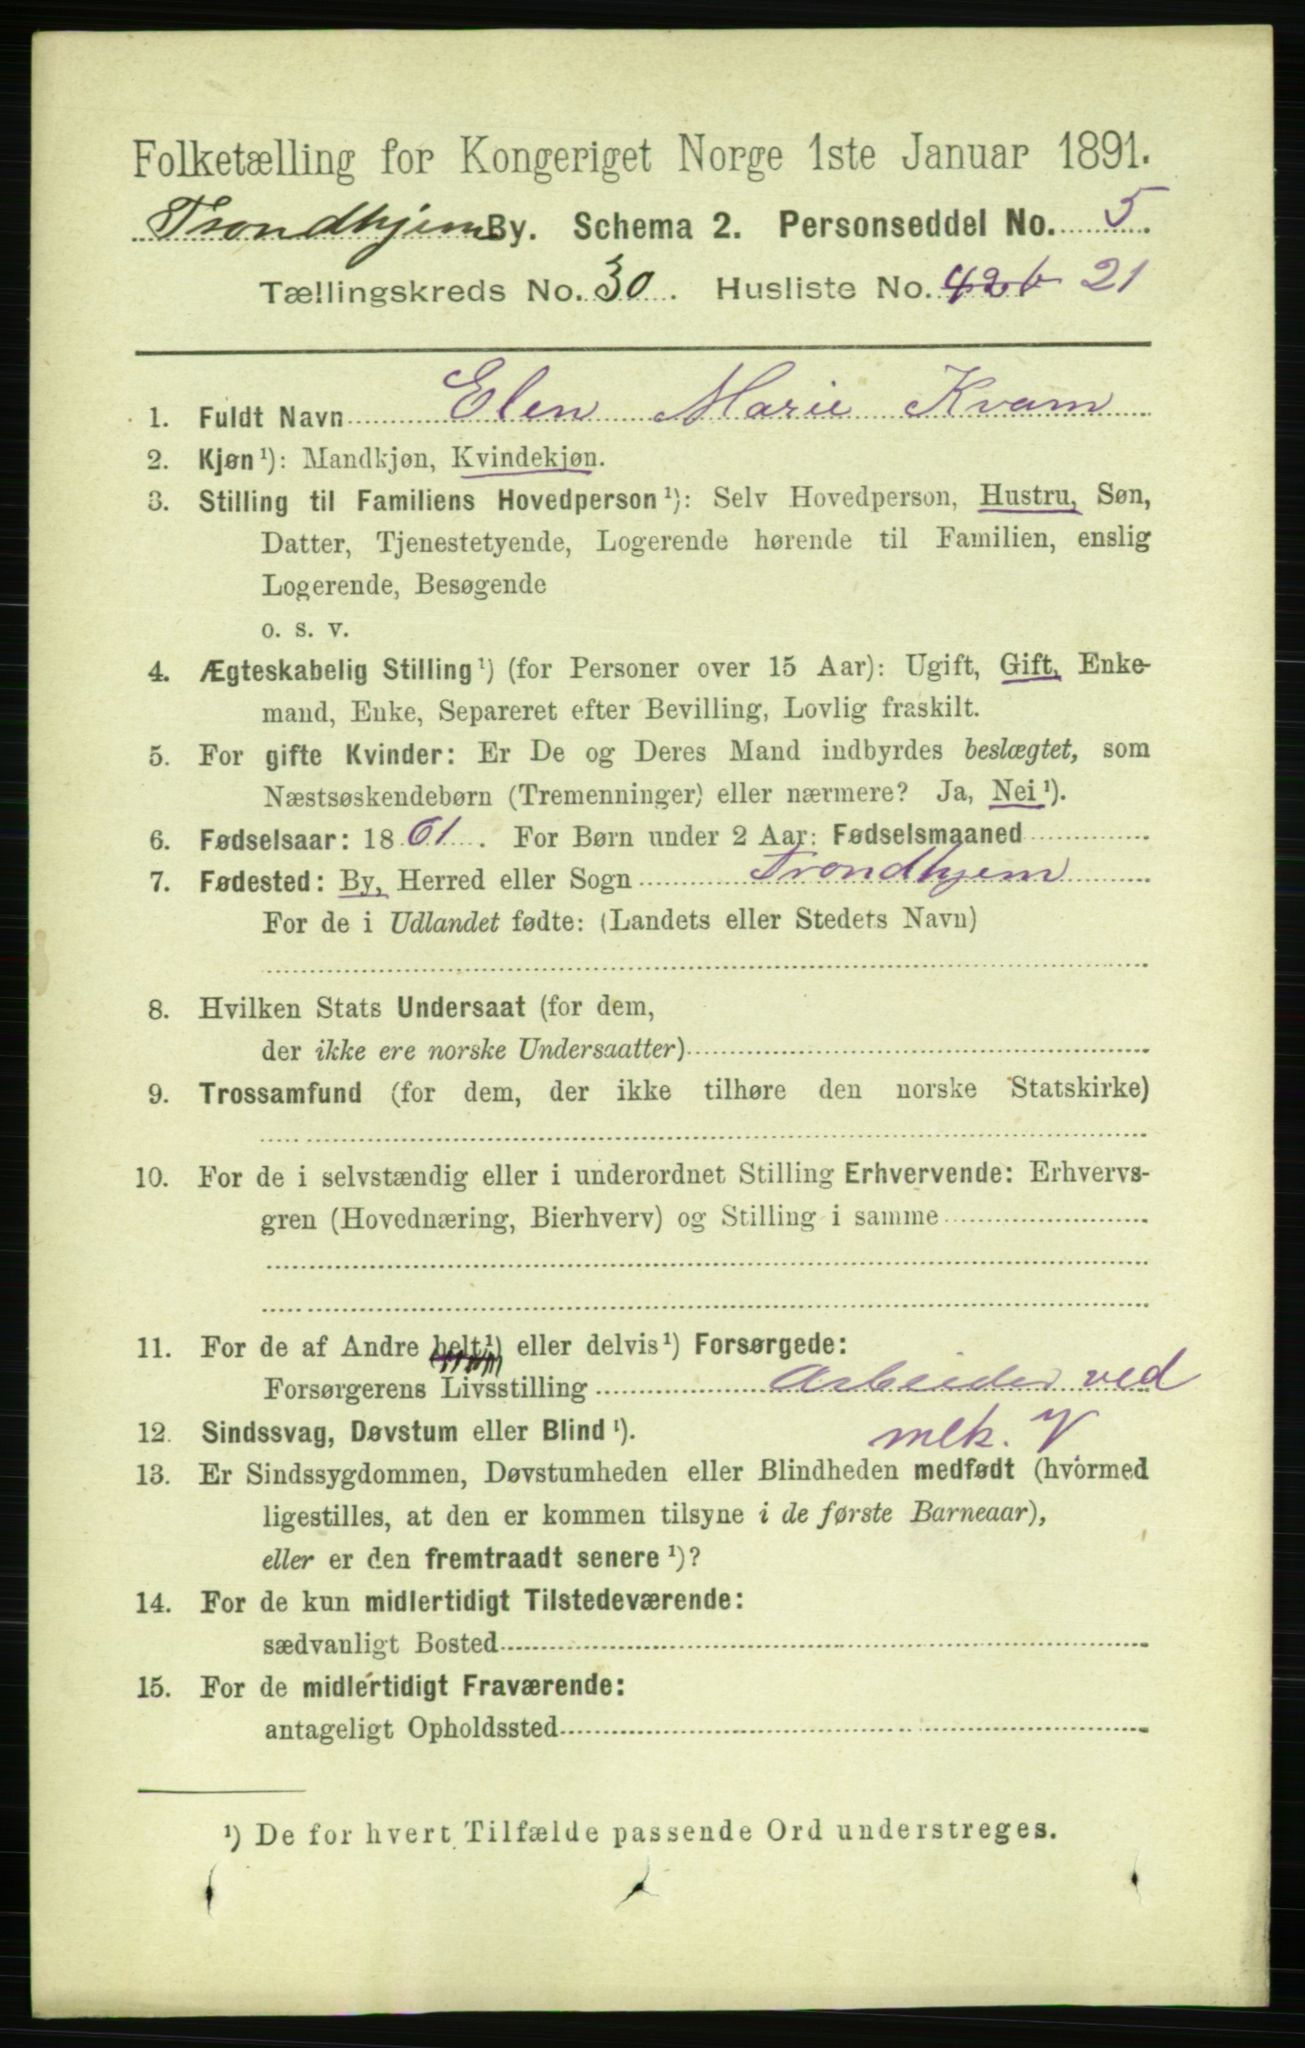 Folketælling for Kongeriget Norge 1ste Januar 1891.
Trondhjem By. Schema 2. Personseddel No. 5.
Tællingskreds No. 30. Husliste No. 42b 21
1. Fuldt Navn Elen Marie Kvam
2. Kjøn¹): Mandkjøn, Kvindekjøn.
3. Stilling til Familiens Hovedperson¹): Selv Hovedperson, Hustru, Søn,
Datter, Tjenestetyende, Logerende hørende til Familien, enslig
Logerende, Besøgende
o. s. v.
4. Ægteskabelig Stilling¹) (for Personer over 15 Aar): Ugift, Gift, Enke-
mand, Enke, Separeret efter Bevilling, Lovlig fraskilt.
5. For gifte Kvinder: Er De og Deres Mand indbyrdes beslægtet, som
Næstsøskendebørn (Tremenninger) eller nærmere? Ja, Nei¹).
6. Fødselsaar: 1861. For Børn under 2 Aar: Fødselsmaaned
7. Fødested: By, Herred eller Sogn Trondhjem
For de i Udlandet fødte: (Landets eller Stedets Navn)
8. Hvilken Stats Undersaat (for dem,
der ikke ere norske Undersaatter)
9. Trossamfund (for dem, der ikke tilhøre den norske Statskirke)
10. For de i selvstændig eller i underordnet Stilling Erhvervende: Erhvervs-
gren (Hovednæring, Bierhverv) og Stilling i samme
11. For de af Andre helt¹) eller delvis¹) Forsørgede:
Forsørgerens Livsstilling Arbeider ved
mek. V
12. Sindssvag, Døvstum eller Blind¹).
13. Er Sindssygdommen, Døvstumheden eller Blindheden medfødt (hvormed
ligestilles, at den er kommen tilsyne i de første Barneaar),
eller er den fremtraadt senere¹)?
14. For de kun midlertidigt Tilstedeværende:
sædvanligt Bosted
15. For de midlertidigt Fraværende:
antageligt Opholdssted
¹) De for hvert Tilfælde passende Ord understreges.